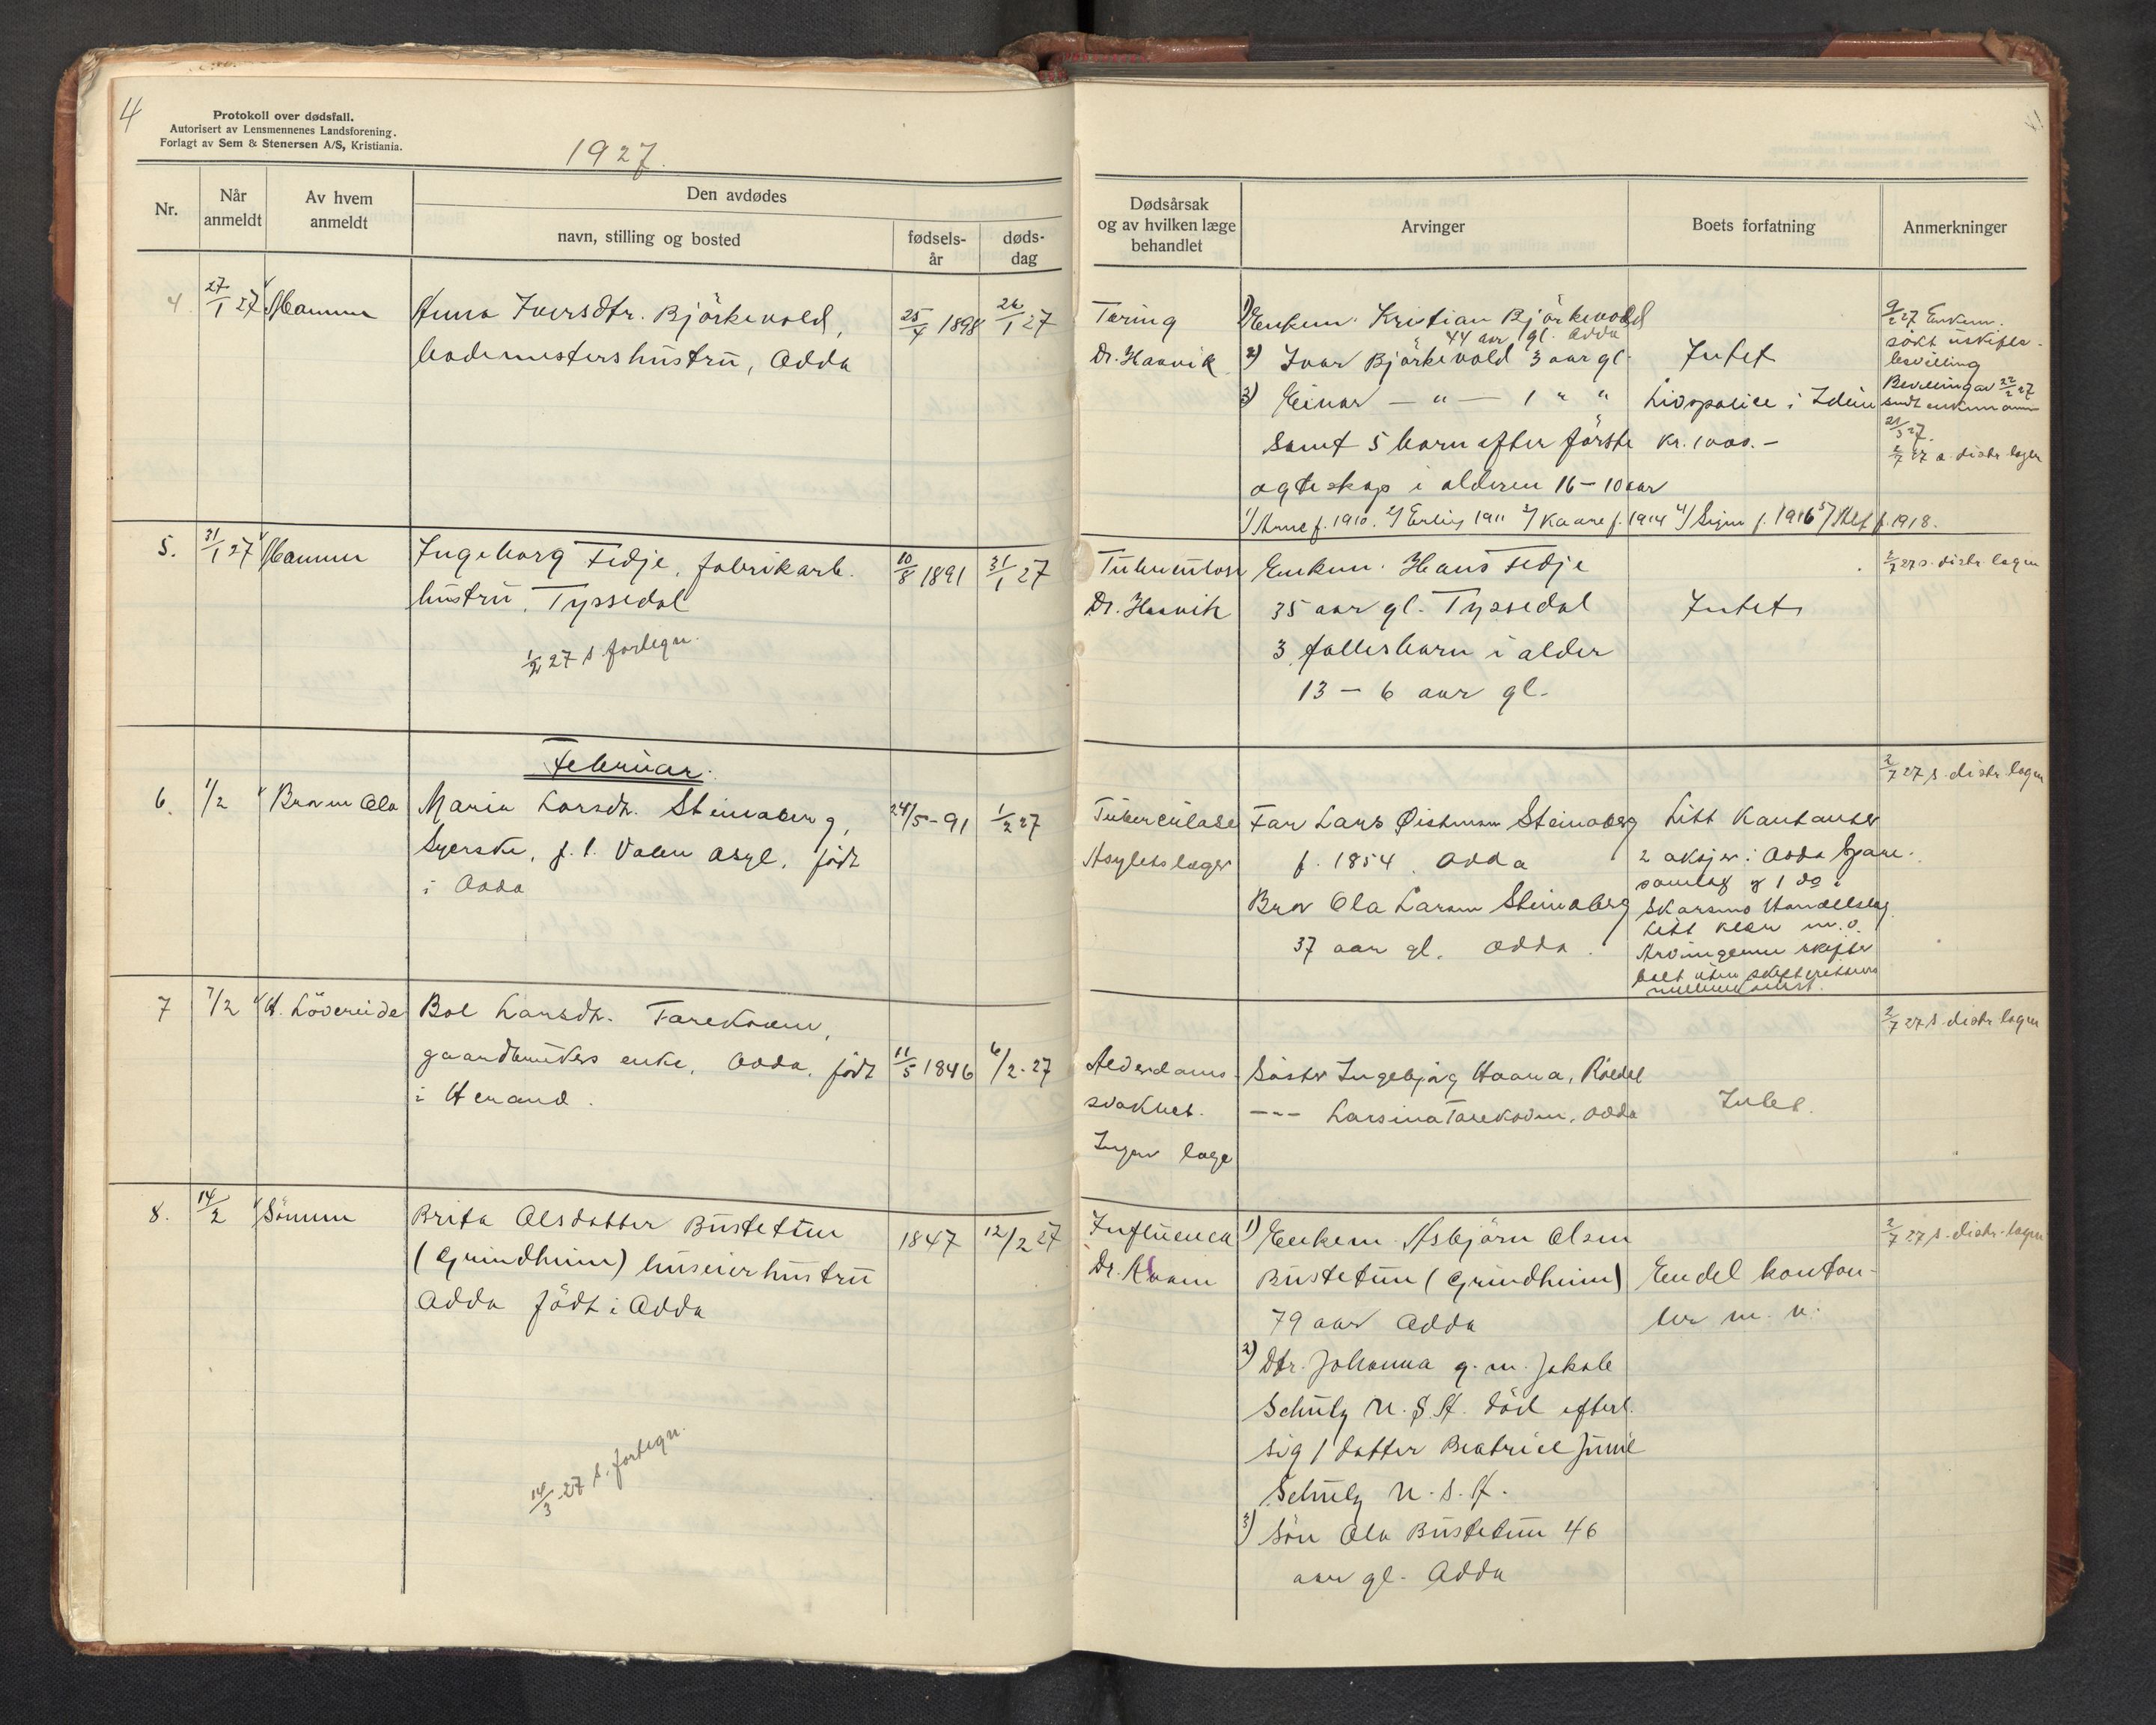 4
Protokoll over dødsfall.
Autorisert av Lensmennenes Landsforening.
Forlagt av Sem & Stenersen A/S, Kristiania.
1927.
Nr.
Når anmeldt
Av hvem anmeldt
Den avdødes
navn, stilling og bosted
fødsels-år
døds-dag
Dødsårsak og av hvilken læge behandlet
Arvinger
Boets forfatning
Anmerkninger
4. 27/1 27 Mannen
Anna Iversdtr. Björkevold,
bademestershustru, Odda
25/4 1898 26/1 27
Tæring
Dr. Haavik
1) Enkem. Kristian Björkevold
44 aar gl. Odda
2) Ivar Björkevold 3 aar gl.
3) Einar — " — 1 " "
Samt 5 barn efter förste
ægteskap i alderen 16 – 10 aar
1) Arne f. 1910. 2) Erling 1911 3) Kaare f. 1914 4) Signe f. 1916 5) Alf f. 1918.
Intet
Livspolice i Idun
kr. 1000.-
9/2 27 Enkem.
søkt uskifte-
bevilling
Bevilling av 22/2 27
sendt enkemannen
21/3 27.
2/7 27 s. distr. lægen
5. 31/1 27 Mannen
Ingeborg Fedje, fabrikarb.
hustru, Tyssedal
1/2 27 s. fortegn.
10/8 1891 31/1 27
Tuberkulose
Dr. Haavik
Enkem. Hans Fedje
35 aar gl. Tyssedal
3 fællesbarn i alder
13 – 6 aar gl.
Intet
2/7 27 s. distr. lægen
Februar.
6. 1/2 Broren Ola
Maria Larsdtr. Steinaberg,
Syerske, f. t. Valen asyl, født
i Odda
24/5-91 1/2 27
Tuberculose
Asylets læger
Far Lars Øistensen Steinaberg
f. 1854. Odda
Bror Ola Larsen Steinaberg
37 aar gl. Odda.
Litt Kontanter
2 aksjer i Odda Spare-
samlag og 1 do i
Skarsmo Handelslag
Litt klær m. v.
Arvingerne skifter
2/7 27 s. distr. lægen
7 7/2 H. Lövereide
Bol Larsdtr. Tarekoven,
gaardbrukers enke, Odda, født
i Herand.
11/5 1846 6/2-27
Alderdoms-
svakhet.
Ingen læge
Søster Ingebjørg Haana, Røldal
--- Larsina Tarekoven, Odda
Intet.
2/7 27 s. distr. lægen
8. 14/2 Sönnen
Brita Olsdatter Bustetun
(Grindheim) huseierhustru
Odda födt i Odda
14/3-27 s. fortegn.
1847 12/2 27
Influenca
Dr. Kvam
1) Enkem. Asbjörn Olsen
Bustetun (Grindheim)
79 aar Odda
2) Dtr. Johanna g. m. Jakob
Schulz U. S. A. död efterl.
sig 1 datter Beatrice Junie
Schulz U. S. A.
3) Sön Ola Bustetun 46
aar gl. Odda
Endel kontan-
ter m. v.
2/7 27 s. distr. lægen